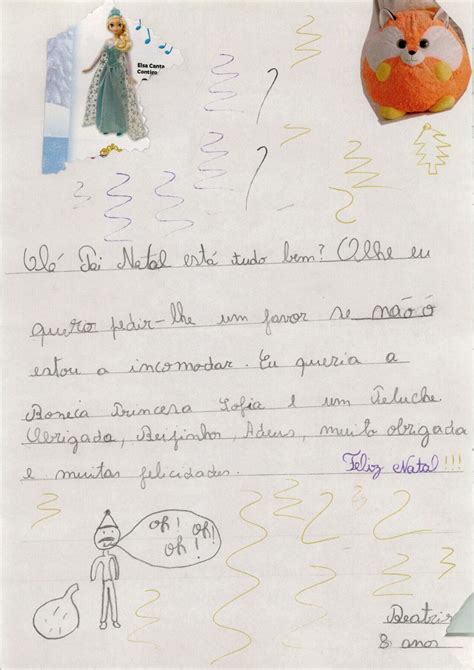 Elsa Canta
Contigo
Olá Pai Natal está tudo bem? Olhe eu
quero pedir-lhe um favor se não o
estou a incomodar. Eu queria a
Boneca Princesa Sofia e um Peluche
Obrigada, Beijinhos, Adeus, muito obrigada
e muitas felicidades. Feliz Natal!!!
oh! oh!
oh!
Beatriz
8 anos